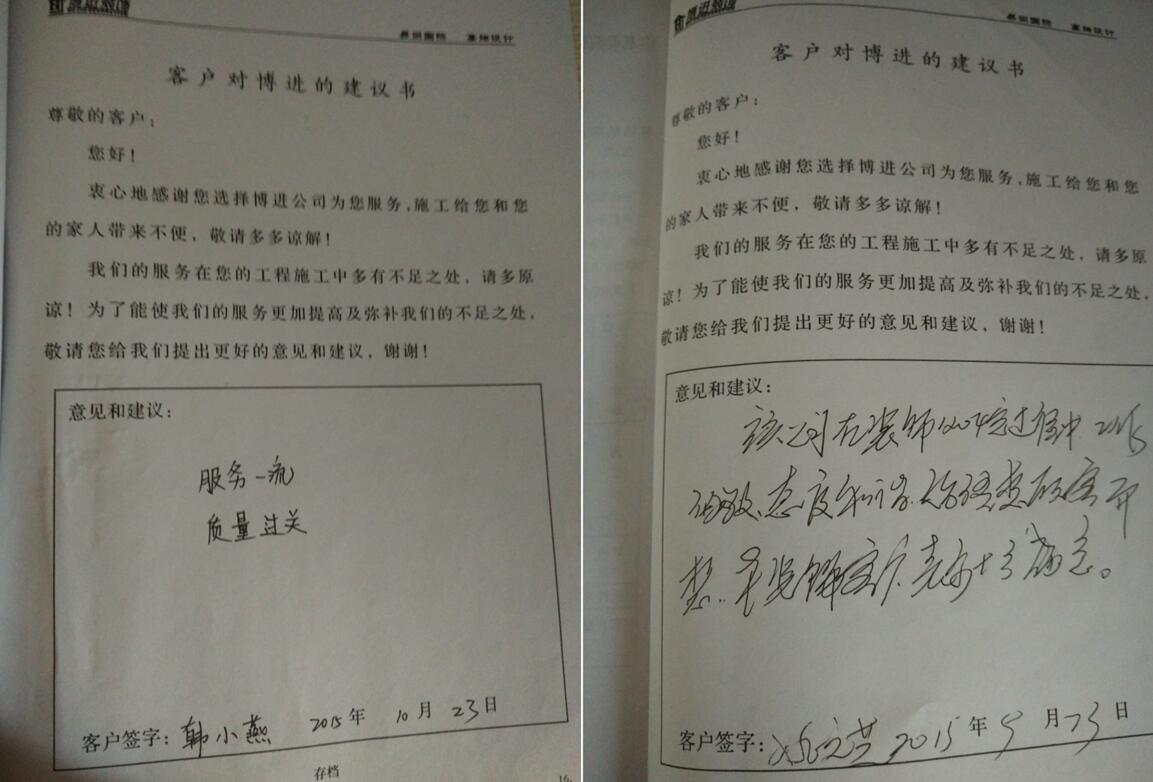 客户对博进的建议书
尊敬的客户：
您好！
衷心地感谢您选择博进公司为您服务，施工给您和您
的家人带来不便，敬请多多谅解！
我们的服务在您的工程施工中多有不足之处，请多原
谅！为了能使我们的服务更加提高及弥补我们的不足之处，
敬请您给我们提出更好的意见和建议，谢谢！
意见和建议：
服务一流
质量过关
客户签字：韩小燕 2015年 10月 23日
存档
16
客户对博进的建议书
尊敬的客户：
您好！
衷心地感谢您选择博进公司为您服务，施工给您和您
的家人带来不便，敬请多多谅解！
我们的服务在您的工程施工中多有不足之处，请多原
谅！为了能使我们的服务更加提高及弥补我们的不足之处，
敬请您给我们提出更好的意见和建议，谢谢！
意见和建议：
该公司在装饰过程中工作
态度
客户表示十分满意。
客户签字： 2015年9月23日